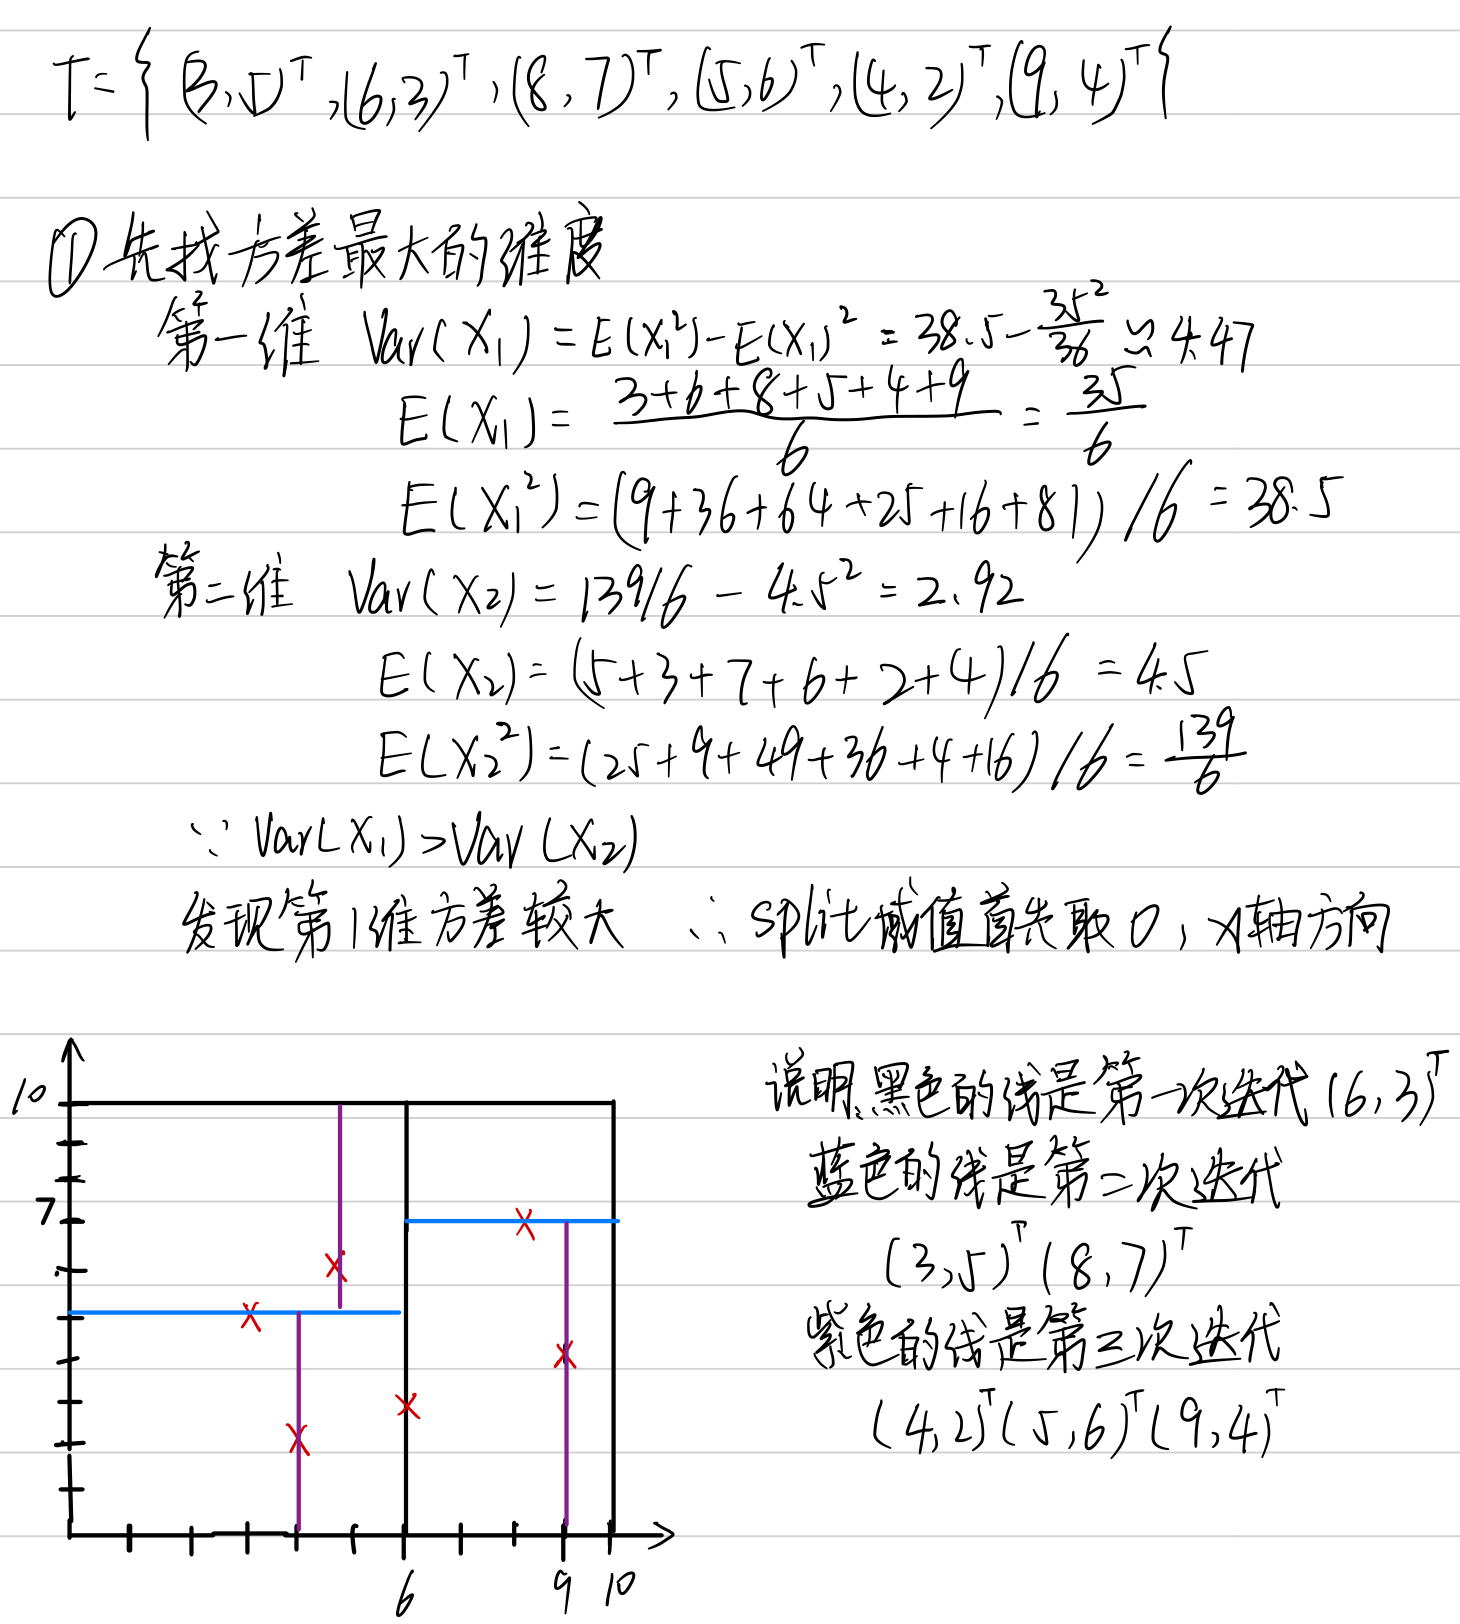 T={ (3,5)ᵀ,(6,3)ᵀ,(8,7)ᵀ,(5,6)ᵀ,(4,2)ᵀ,(9,4)ᵀ{
①先找方差最大的维度
第一维 Var(X₁) = E(X₁²)-E(X₁)² = 38.5-35²/36 ≈ 4.47
E(X₁) = (3+6+8+5+4+9)/6 = 35/6
E(X₁²)=(9+36+64+25+16+81)/6 = 38.5
第二维 Var(X₂) = 139/6 - 4.5² = 2.92
E(X₂)= (5+3+7+6+2+4)/6 = 4.5
E(X₂²)=(25+9+49+36+4+16)/6 = 139/6
∵ Var(X₁)>Var(X₂)
发现第1维方差较大 ∴ split域值首先取0, x轴方向
10
7
6
9
10
说明:黑色的线是第一次迭代(6,3)ᵀ
蓝色的线是第二次迭代
(3,5)ᵀ(8,7)ᵀ
紫色的线是第三次迭代
(4,2)ᵀ(5,6)ᵀ(9,4)ᵀ